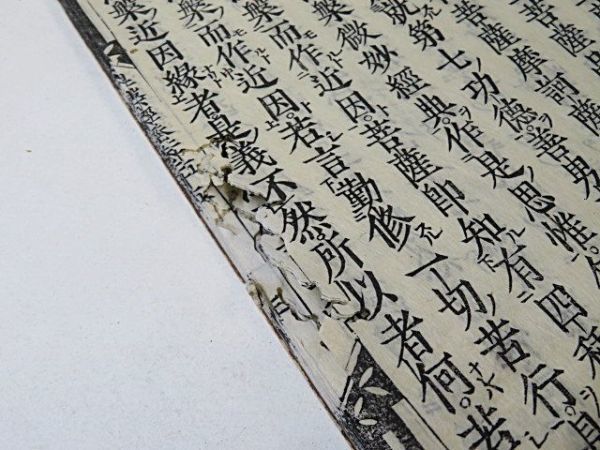 菩薩摩訶薩
就第七功德善男
槃微妙經典作是思惟
槃而作近因菩薩即知有四種
槃而作近因若言勤修一切苦行是
槃近因緣者是義不然所以者何若